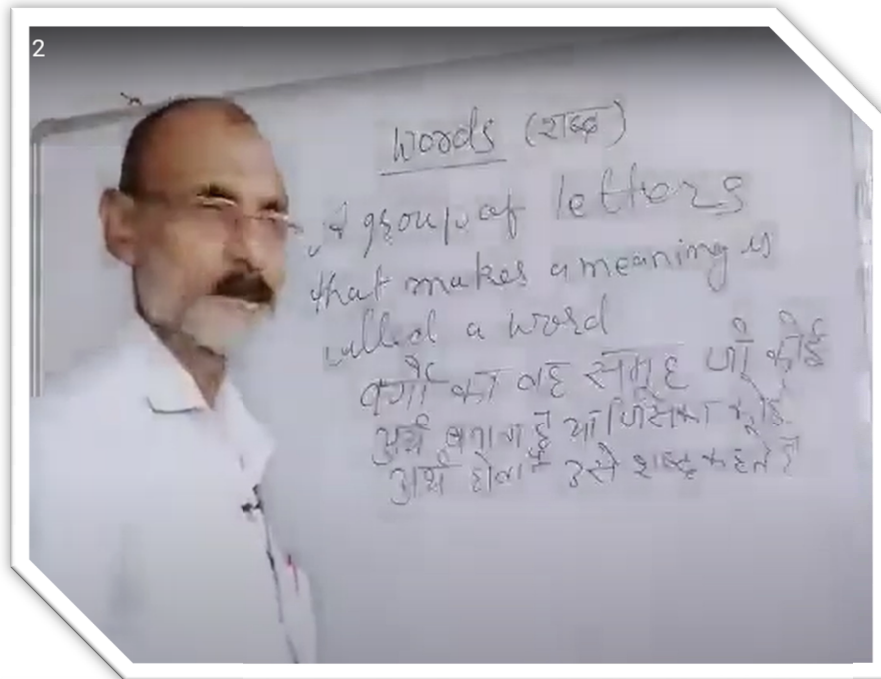 2
Words (शब्द)
A group of letters
that makes a meaning is
called a word
वर्णों का वह समूह जो कोई
अर्थ बनाता है या जिसका कोई
अर्थ होता है उसे शब्द कहते हैं